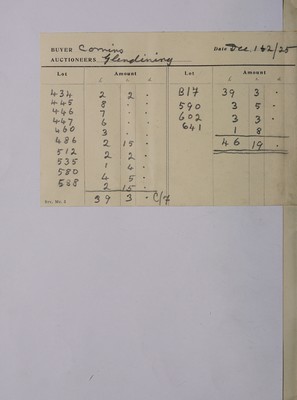 BUYER Comins Date Dec 1&2/25
AUCTIONEERS Glendining
Lot Amount Lot Amount
£ s. d. £ s. d.
434 2 2 .
445 8 . .
446 7 . .
447 6 . .
460 3 . .
486 2 15 .
512 2 2 .
535 1 4 .
580 4 5 .
588 2 15 .
39 3 . C/7
B/7 39 3 .
590 3 5 .
602 3 3 .
641 1 8 .
46 19 .